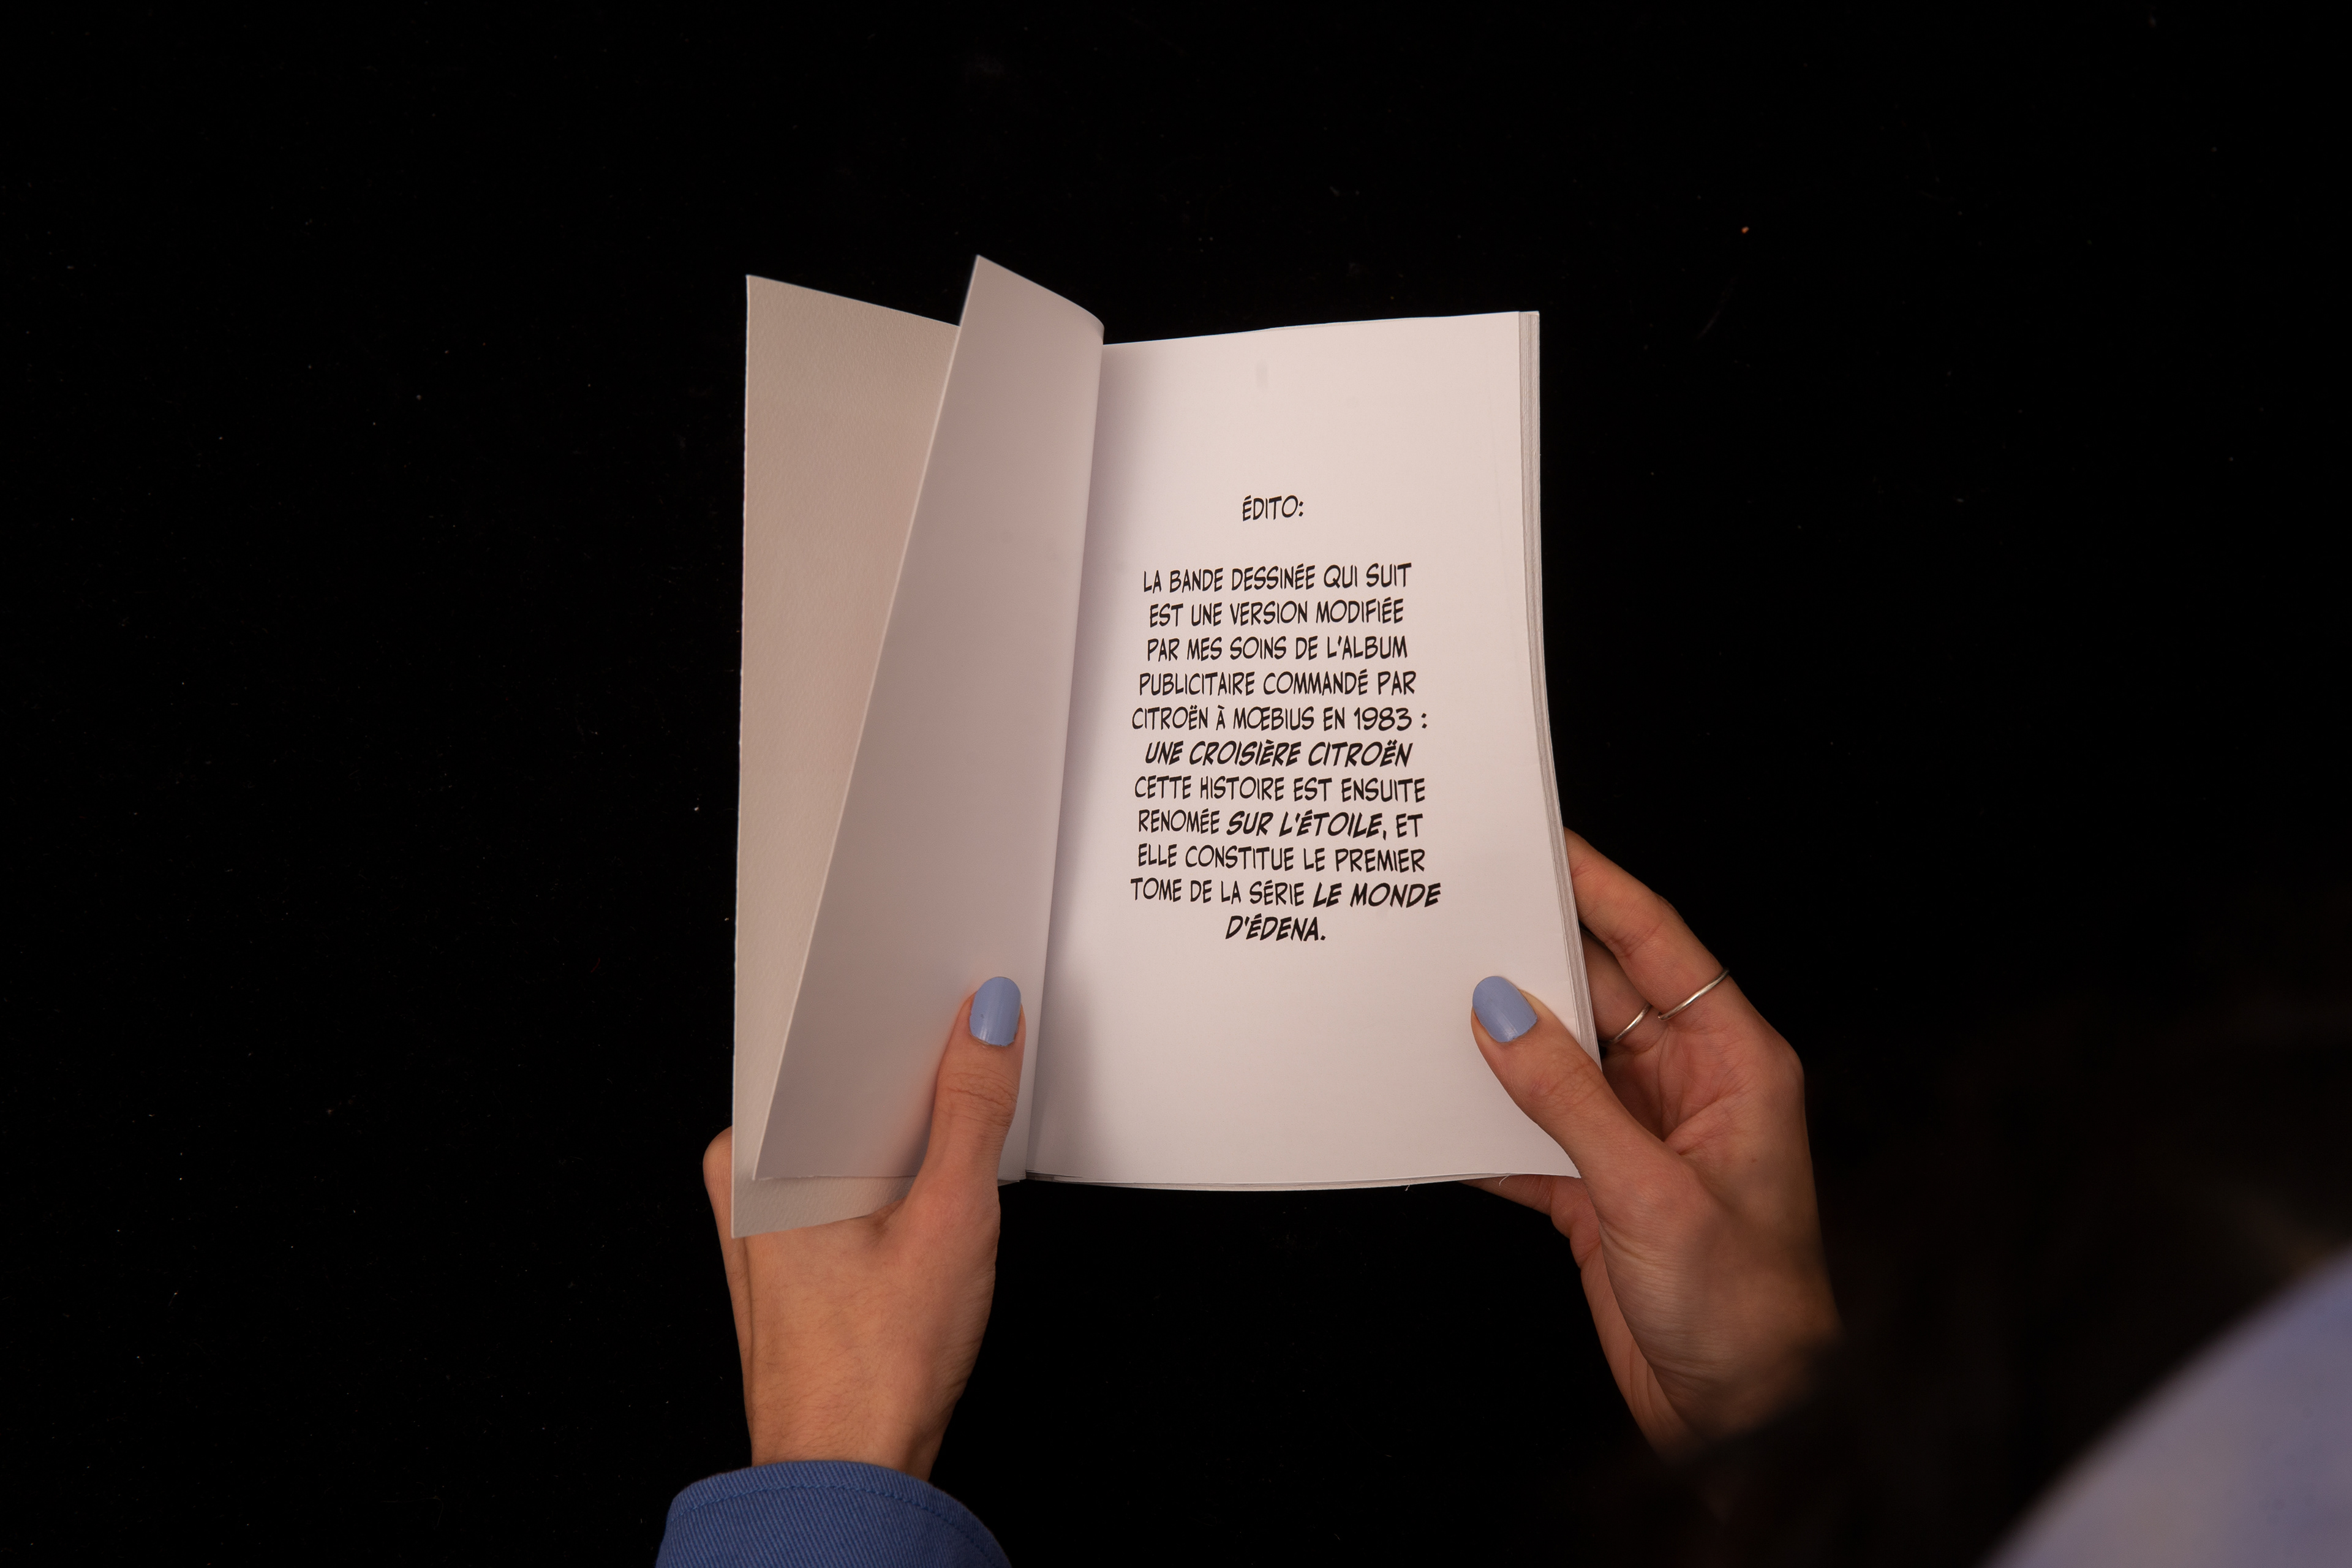 ÉDITO:
LA BANDE DESSINÉE QUI SUIT
EST UNE VERSION MODIFIÉE
PAR MES SOINS DE L'ALBUM
PUBLICITAIRE COMMANDÉ PAR
CITROËN À MŒBIUS EN 1983 :
UNE CROISIÈRE CITROËN
CETTE HISTOIRE EST ENSUITE
RENOMÉE SUR L'ÉTOILE, ET
ELLE CONSTITUE LE PREMIER
TOME DE LA SÉRIE LE MONDE
D'ÉDENA.